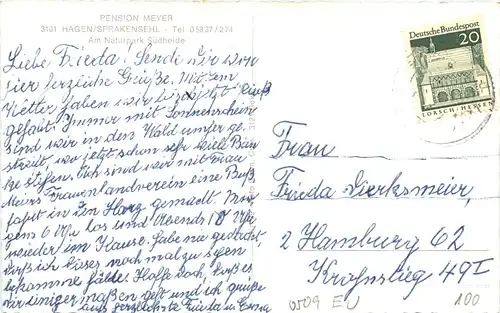 PENSION MEYER
3101 HAGEN/SPRAKENSEHL · Tel. 05837/274
Am Naturpark Südheide
Liebe Frieda! Sende Dir von
hier herzliche Grüße. Mit dem
Wetter haben wir bis jetzt Glück
gehabt. Immer mit Sonnenschein
sind wir in den Wald umher ge-
streift, wo jetzt schon sehr viele Bän-
ke stehen. Ich sind wir mit Frau
Meiers Frauenlandverein eine Buß-
fahrt in den Harz gemacht. Mor-
gens 6 Uhr los und Abends 10 Uhr
wieder im Hause. Habe nie gedacht,
daß ich dieses noch mal zu sehen
bekomme. Hoffe doch, daß es
Dir einigermaßen geht und ich grüße
aufs herzlichste Frieda
Deutsche Bundespost
20
LORSCH/HESSEN
Frau
Frieda Dierksmeier,
2 Hamburg 62
Krohnstieg 49 I
100